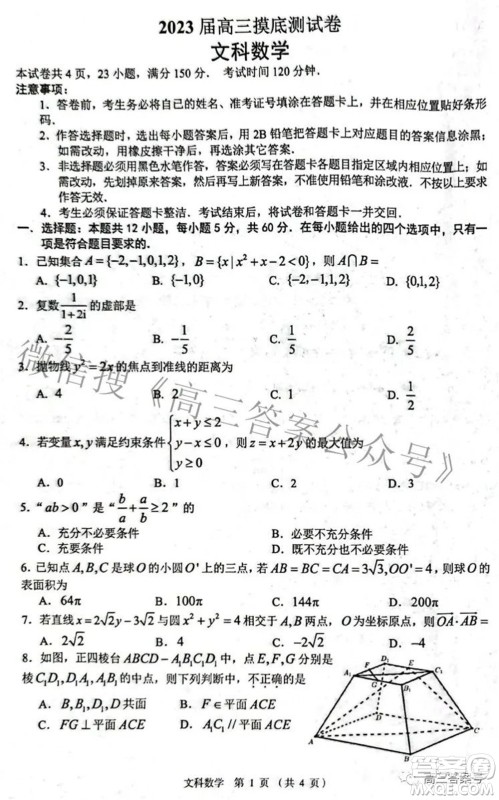 2023 届高三摸底测试卷
文科数学
本试卷共 4 页，23 小题，满分 150 分．考试时间 120 分钟．
注意事项：
1．答卷前，考生务必将自己的姓名、准考证号填涂在答题卡上，并在相应位置贴好条形
码．
2．作答选择题时，选出每小题答案后，用 2B 铅笔把答题卡上对应题目的答案信息涂黑；
如需改动，用橡皮擦干净后，再选涂其它答案．
3．非选择题必须用黑色水笔作答，答案必须写在答题卡各题目指定区域内相应位置上；
如需改动，先划掉原来答案，然后再写上新答案，不准使用铅笔和涂改液．不按以上要求
作答无效．
4．考生必须保证答题卡整洁．考试结束后，将试卷和答题卡一并交回．
一．选择题：本题共 12 小题，每小题 5 分，共 60 分．在每小题给出的四个选项中，只有一
项是符合题目要求的．
1．已知集合 A={-2,-1,0,1,2}，B={x|x²+x-2<0}，则 A∩B=
A．{-1,0,1} B．{-1,0} C．{-2,-1,0} D．{0,1,2}
2．复数 1/(1+2i) 的虚部是
A．-2/5 B．-1/5 C．1/5 D．2/5
3．抛物线 y²=2x 的焦点到准线的距离为
A．4 B．2 C．1 D．1/2
4．若变量 x,y 满足约束条件 {x+y≤2, y-x≤0, y≥0，则 z=x+2y 的最大值为
A．0 B．1 C．2 D．3
5．“ab>0”是“b/a+a/b≥2”的
A．充分不必要条件 B．必要不充分条件
C．充要条件 D．既不充分也不必要条件
6．已知点 A,B,C 是球 O 的小圆 O' 上的三点，若 AB=BC=CA=3√3,OO'=4，则球 O 的
表面积为
A．64π B．100π C．144π D．200π
7．若直线 x=2√2y-3√2 与圆 x²+y²=4 相交于 A,B 两点，O 为坐标原点，则 OA·AB=
A．2√2 B．4 C．-2√2 D．-4
8．如图，正四棱台 ABCD-A₁B₁C₁D₁ 中，点 E,F,G 分别是
棱 C₁D₁,D₁A₁,A₁B₁ 的中点，则下列判断中，不正确的是
A．B,B₁,D,D₁ 共面 B．F∈平面 ACE
C．FG⊥平面 ACE D．A₁C₁//平面 ACE
文科数学 第 1 页（共 4 页）
微信搜《高三答案公众号》
高三答案号